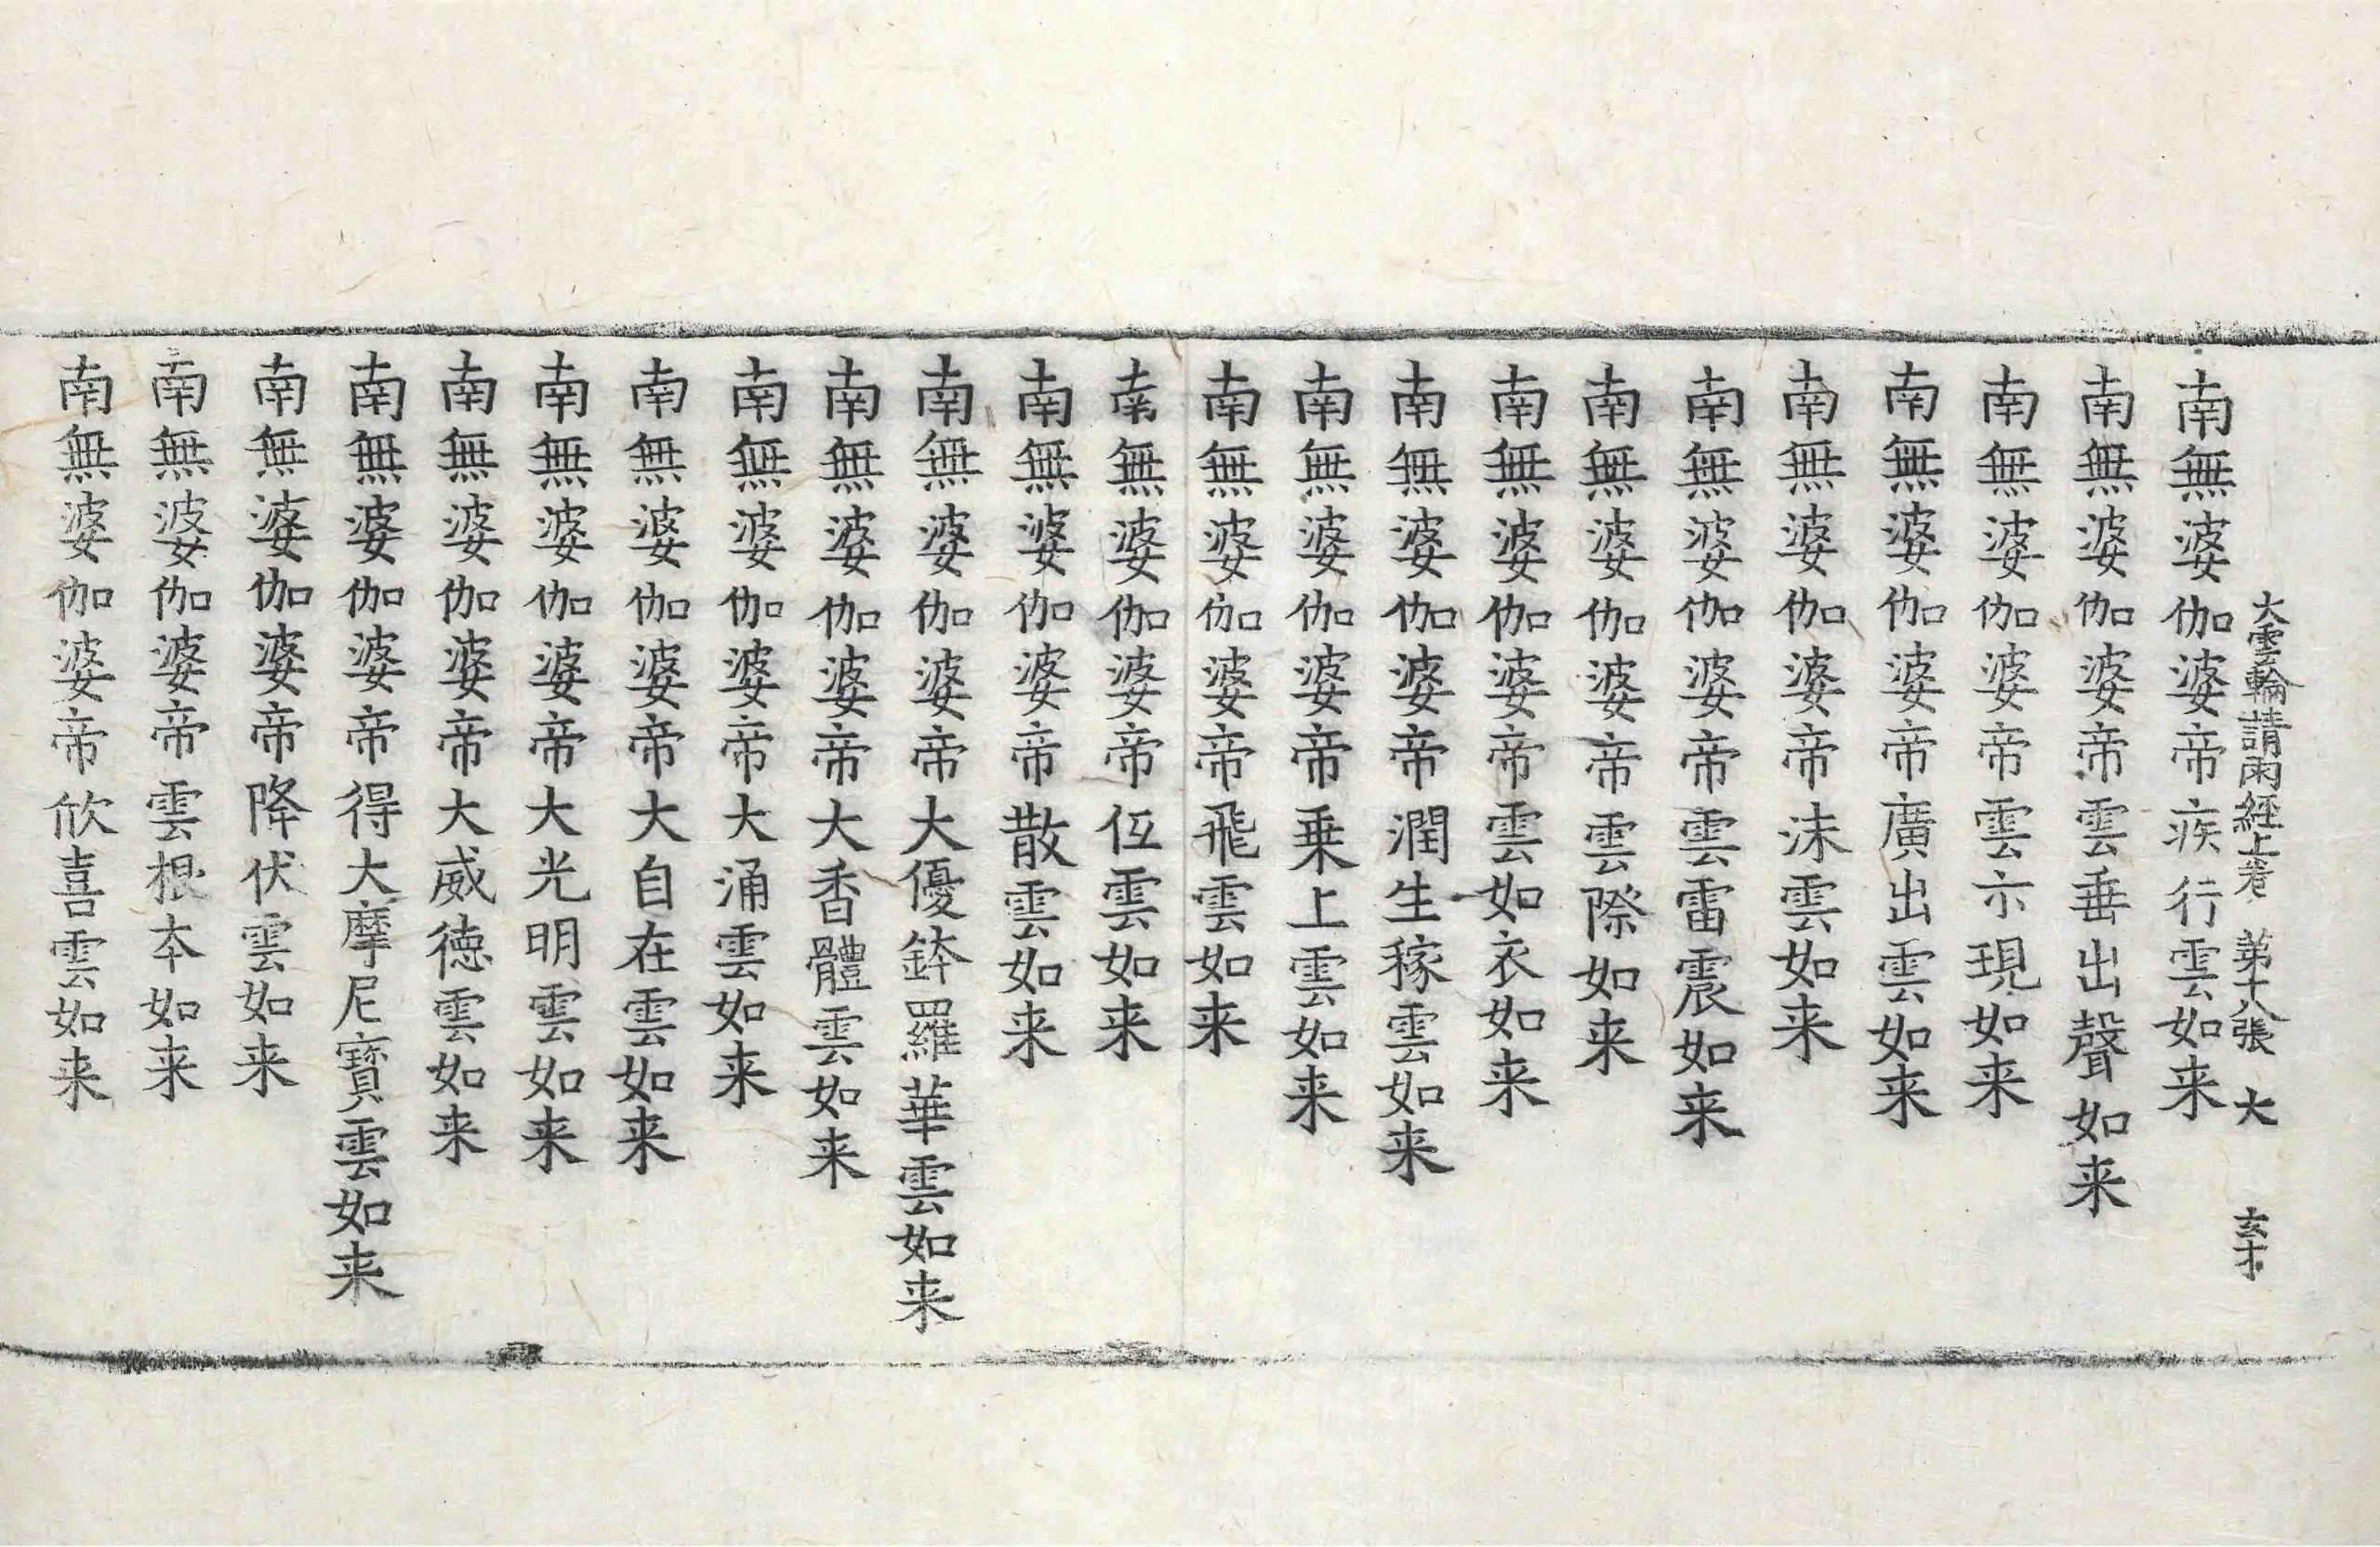 大雲輪請雨経上卷 第十八張 大
南無婆伽婆帝疾行雲如来
南無婆伽婆帝雲垂出聲如来
南無婆伽婆帝雲示現如来
南無婆伽婆帝廣出雲如来
南無婆伽婆帝沫雲如来
南無婆伽婆帝雲雷震如来
南無婆伽婆帝雲際如来
南無婆伽婆帝雲如衣如来
南無婆伽婆帝潤生稼雲如来
南無婆伽婆帝乗上雲如来
南無婆伽婆帝飛雲如来
南無婆伽婆帝仾雲如来
南無婆伽婆帝散雲如来
南無婆伽婆帝大優鉢羅華雲如来
南無婆伽婆帝大香體雲如来
南無婆伽婆帝大涌雲如来
南無婆伽婆帝大自在雲如来
南無婆伽婆帝大光明雲如来
南無婆伽婆帝大威徳雲如来
南無婆伽婆帝得大摩尼寶雲如来
南無婆伽婆帝降伏雲如来
南無婆伽婆帝雲根本如来
南無婆伽婆帝欣喜雲如来